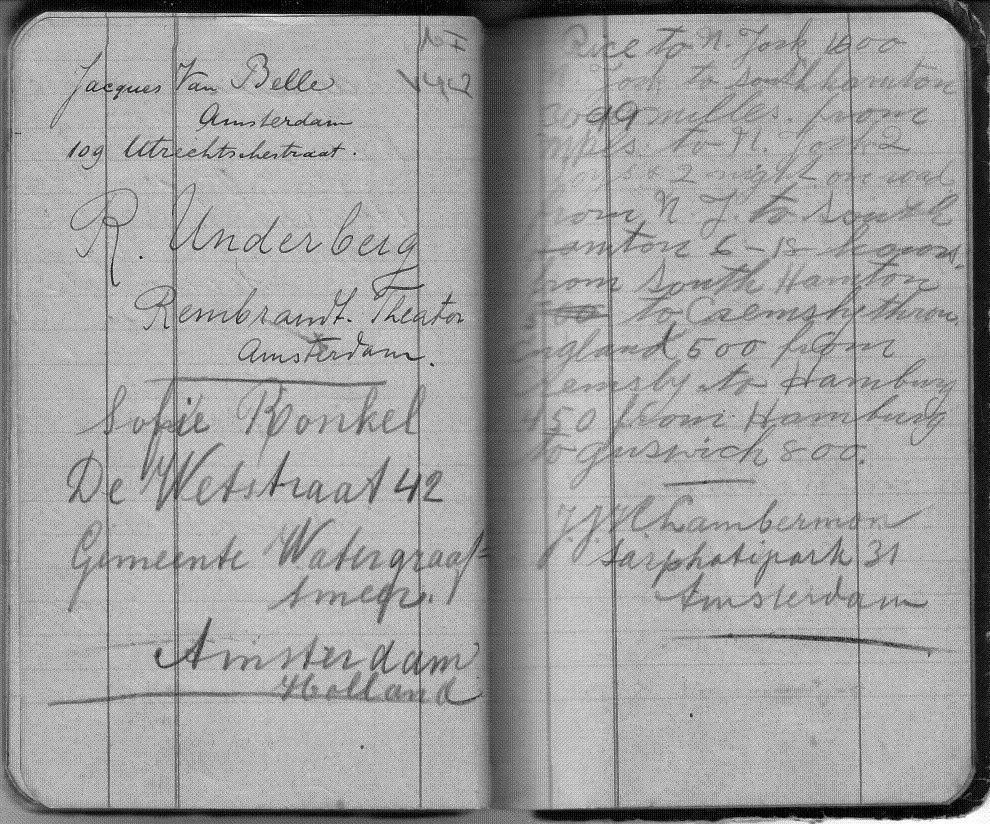 Jacques Van Belle
Amsterdam
109 Utrechtschestraat.
R. Underberg
Rembrandt. Theator
Amsterdam.
Sofie Konkel
De Wetstraat 42
Gemeente Watergraaf=
smeer.
Amsterdam
Holland
Rice to N. York 1600
N. York to Southhamton
milles. from
to N. York 2
2 night on road
from N. J. to South
Hamton 6 - 18 hours.
from South Hamton
to
England 500 from
to Hamburg
450 from Hamburg
to 800.
J. J. W. Chambermon
Sarphatipark 31
Amsterdam